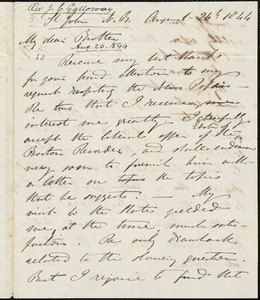 Rev J. C. Galloway
St John N. B. August 26th 1844
My dear Brother
Aug. 26. 1844
Receive my best thanks
for your kind attention to my
request respecting the News Papers
The two that I received
interest me greatly I gratefully
accept the liberal offer of the
Boston Recorder and shall endeavour
very soon to furnish him with
a letter on the topics
that he suggests. — My
visit to the States yielded
me, at the time, much satis-
faction. The only drawback
related to the slavery question.
But I rejoice to find that